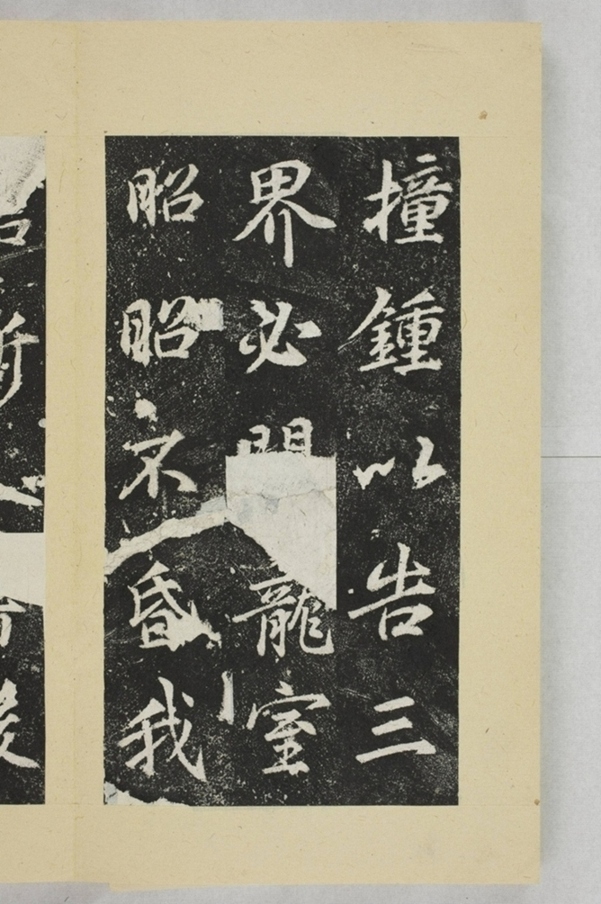 撞鍾以告三
界必龍室
昭昭不昏我